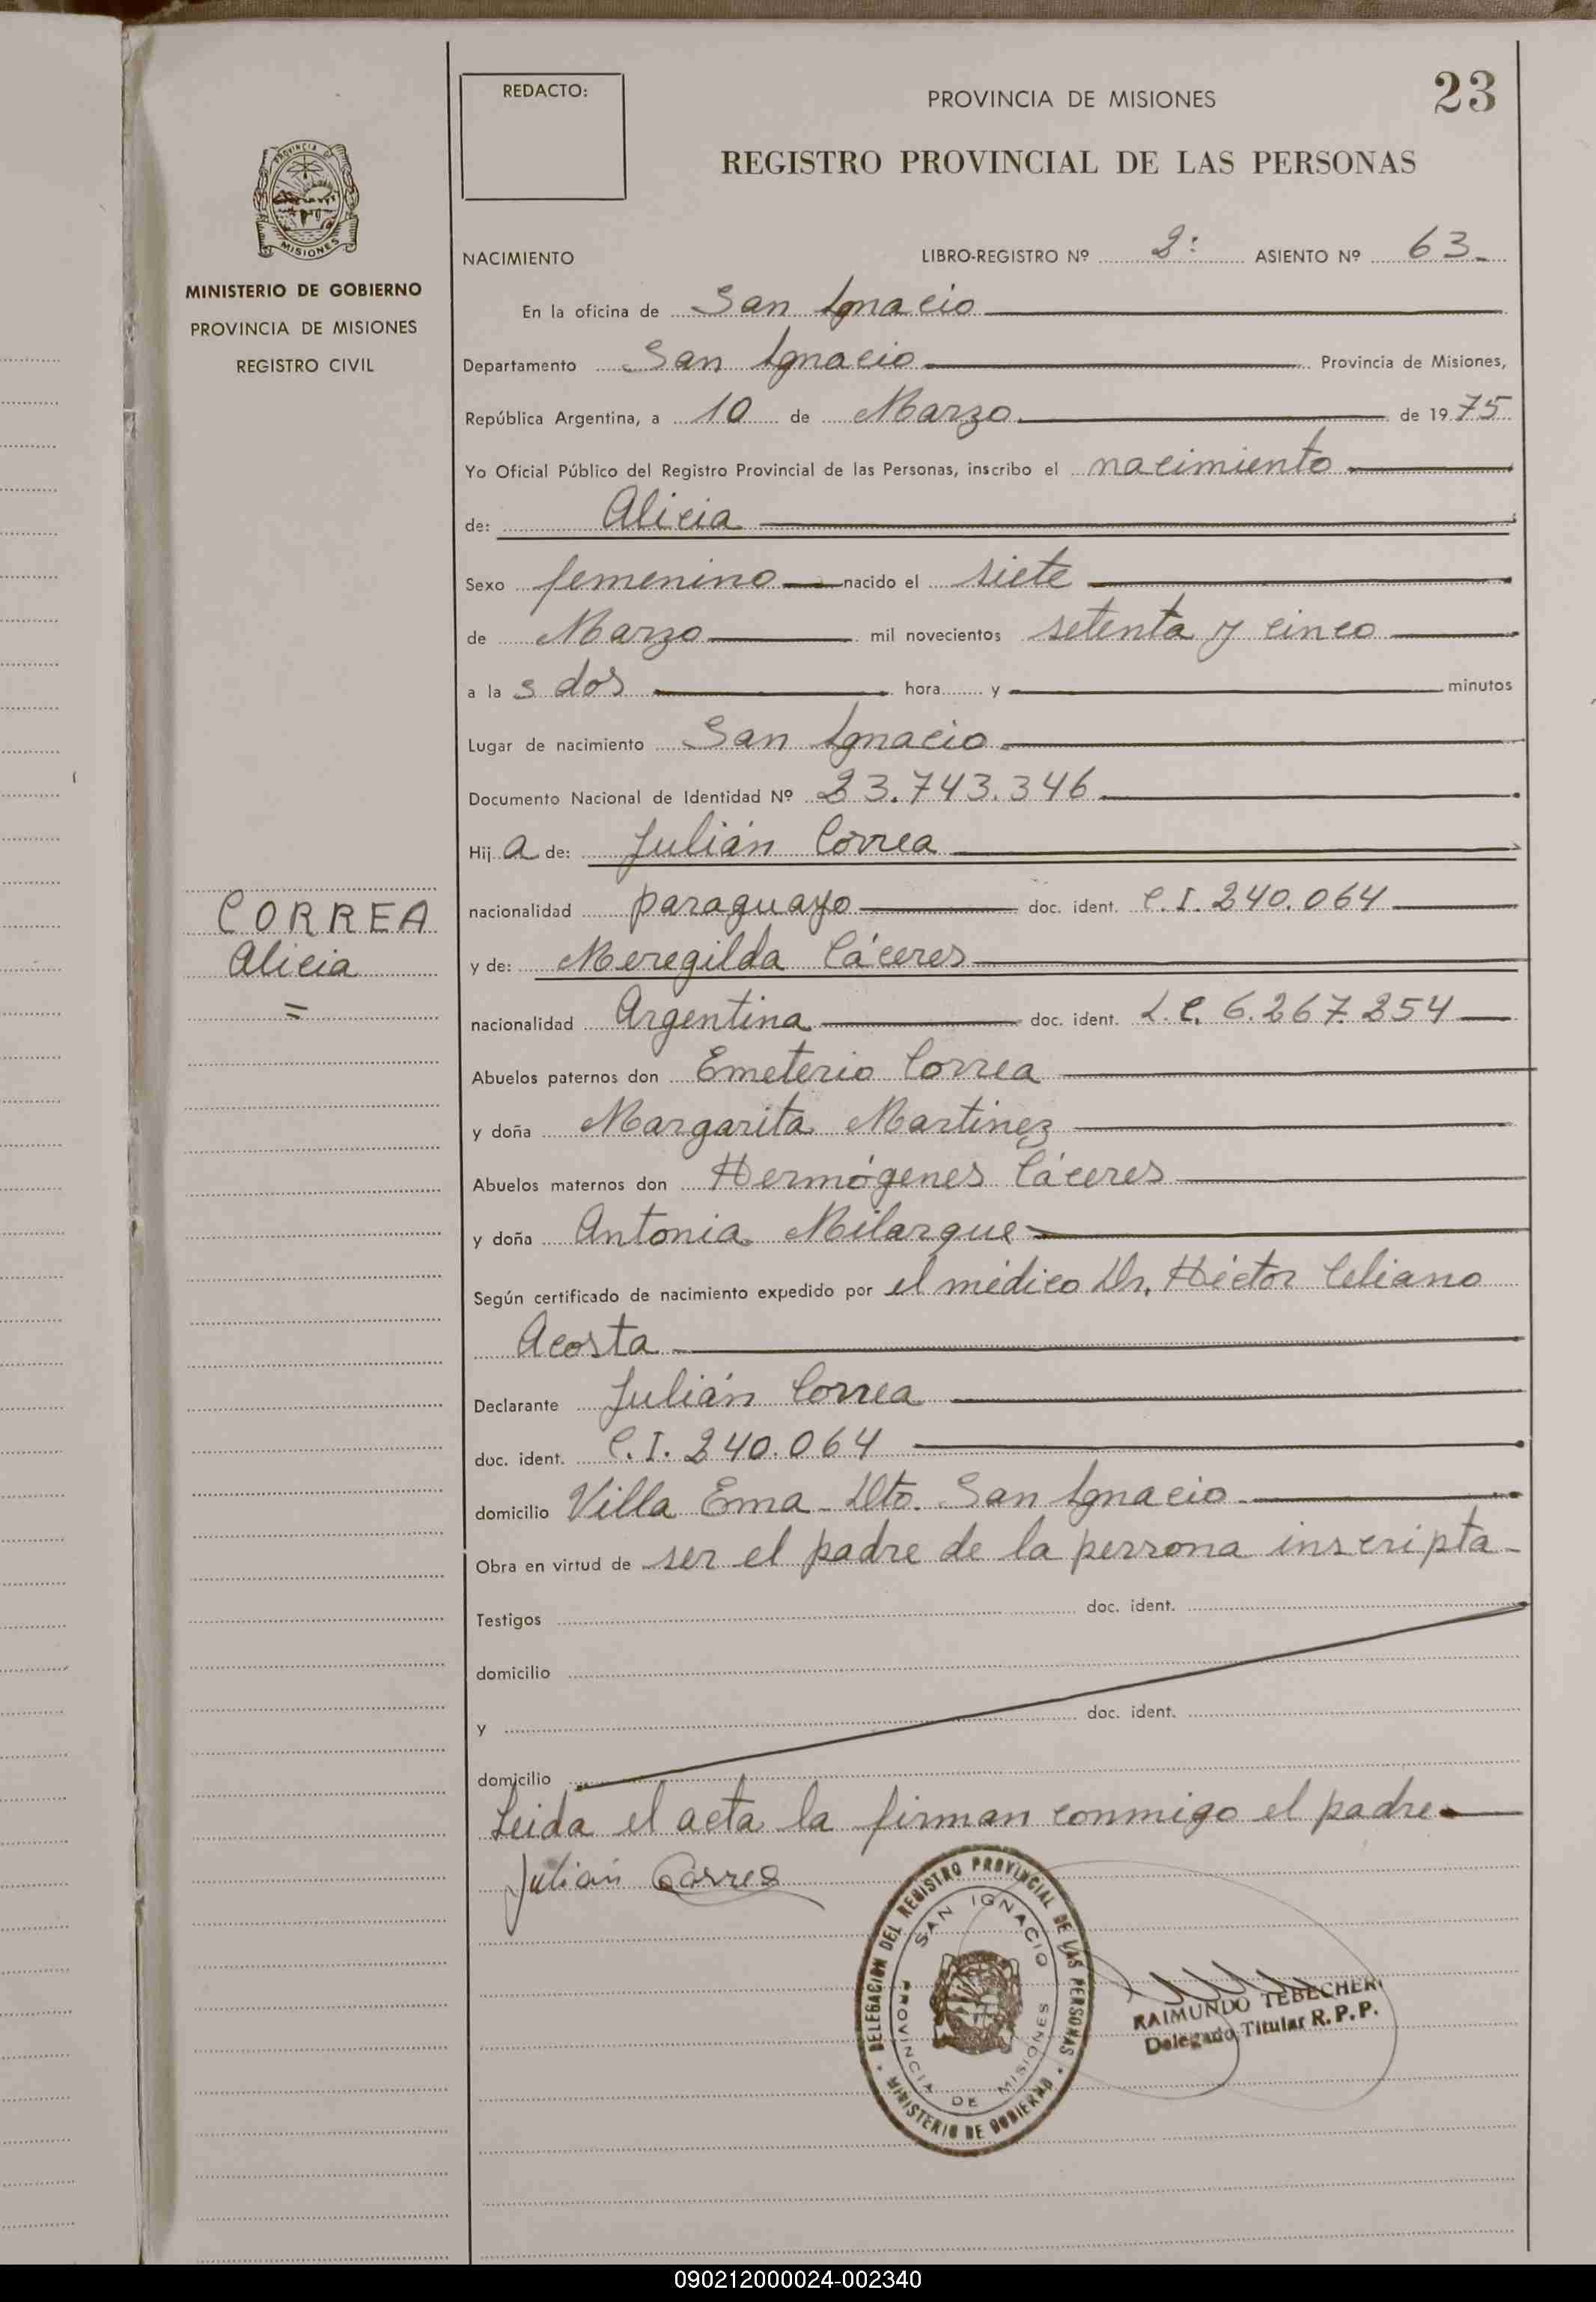 REDACTO:
PROVINCIA DE MISIONES
23
REGISTRO PROVINCIAL DE LAS PERSONAS
PROVINCIA DE
MISIONES
MINISTERIO DE GOBIERNO
PROVINCIA DE MISIONES
REGISTRO CIVIL
NACIMIENTO LIBRO-REGISTRO Nº 2: ASIENTO Nº 63
En la oficina de San Ignacio
Departamento San Ignacio Provincia de Misiones,
República Argentina, a 10 de Marzo de 1975
Yo Oficial Público del Registro Provincial de las Personas, inscribo el nacimiento
de: Alicia
Sexo femenino nacido el siete
de Marzo mil novecientos setenta y cinco
a las dos hora y minutos
Lugar de nacimiento San Ignacio
Documento Nacional de Identidad Nº 23.743.346
Hija de: Julián Correa
nacionalidad paraguayo doc. ident. C.I. 240.064
CORREA
Alicia
=
y de: Meregilda Cáceres
nacionalidad Argentina doc. ident. L.C. 6.267.254
Abuelos paternos don Emeterio Correa
y doña Margarita Martinez
Abuelos maternos don Hermógenes Cáceres
y doña Antonia Milarque
Según certificado de nacimiento expedido por el médico Dr. Héctor Celiano
Acosta
Declarante Julián Correa
doc. ident. C.I. 240.064
domicilio Villa Ema - Dto. San Ignacio
Obra en virtud de ser el padre de la persona inscripta
Testigos doc. ident.
domicilio
y doc. ident.
domicilio
Leida el acta la firman conmigo el padre
Julián Correa
DELEGACION DEL REGISTRO PROVINCIAL DE LAS PERSONAS
MINISTERIO DE GOBIERNO
SAN IGNACIO
PROVINCIA DE MISIONES
RAIMUNDO TEBECHERI
Delegado Titular R.P.P.
090212000024-002340